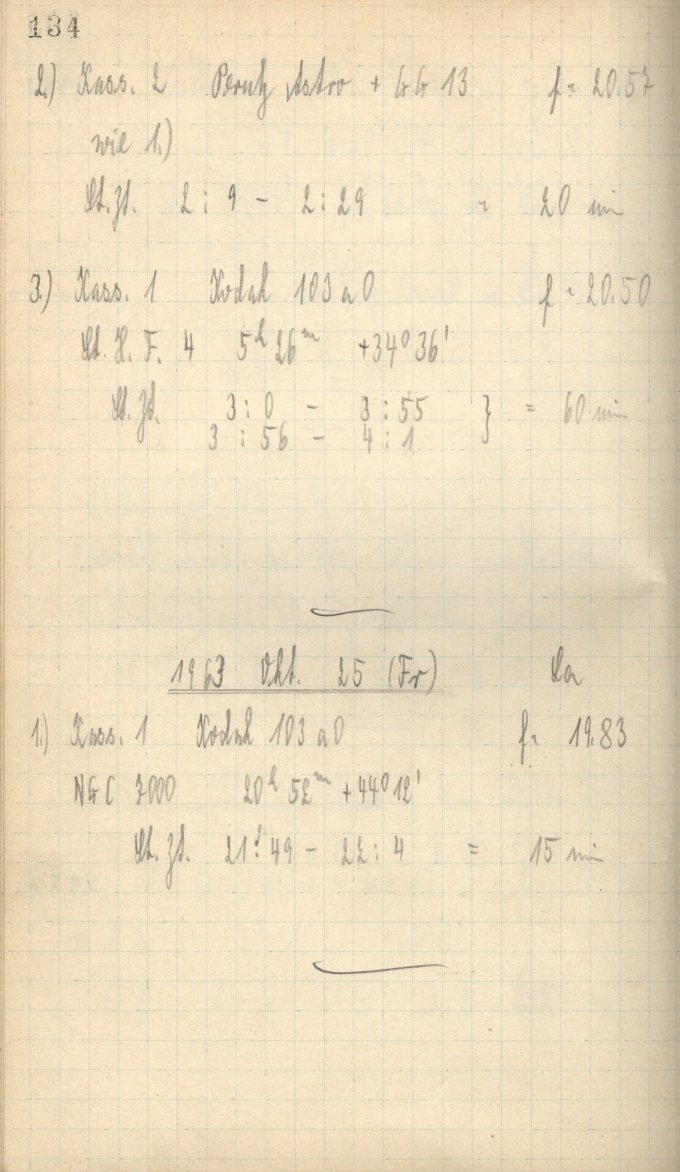 134
2.) Kass. 2 Perutz Astro + GG 13 f = 20.57
wie 1.)
St. Zt. 2 : 9 - 2 : 29 = 20 min
3.) Kass. 1 Kodak 103 a 0 f = 20.50
St. H. F. 4 5h 26m +34° 36'
St. Zt. 3 : 0 - 3 : 55 } = 60 min
3 : 56 - 4 : 1
1963 Okt. 25 (Fr)
1.) Kass. 1 Kodak 103 a 0 f = 19.83
NGC 7000 20h 52m +44° 12'
St. Zt. 21 : 49 - 22 : 4 = 15 min